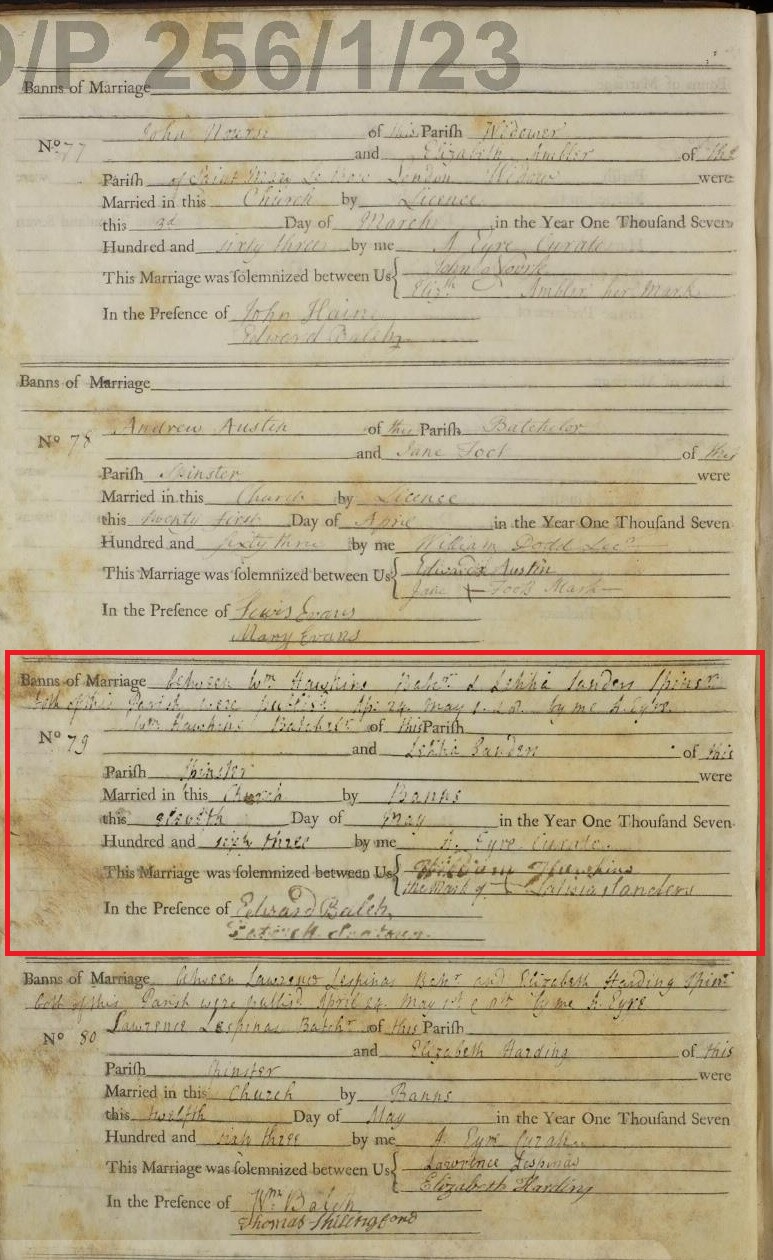 D/P 256/1/23
Banns of Marriage
John Nourse of this Parish Widower
No 77 and Elizabeth Ambler of the
Parish of Saint Mary Le London Widow were
Married in this Church by Licence
this 3d Day of March in the Year One Thouſand Seven
Hundred and sixty three by me A Eyre Curate
This Marriage was ſolemnized between Us John Nourse
Elizth Ambler her Mark
In the Preſence of John Haine
Edward Balch
Banns of Marriage
Andrew Austin of this Pariſh Batchelor
No 78 and Jane Foot of this
Pariſh Spinster were
Married in this Church by Licence
this twenty first Day of April in the Year One Thouſand Seven
Hundred and sixty three by me William Dodd Lecr
This Marriage was ſolemnized between Us Austin
Jane Foots Mark
In the Preſence of Lewis Evans
Mary Evans
Banns of Marriage between Wm Hawkins Batr & Letitia Sanders Spinsr
both of this Parish were publish Apr 24 May 1. & 8. by me A. Eyre
Wm Hawkins Batcher of this Pariſh
No 79 and Letitia Sanders of this
Pariſh Spinster were
Married in this Church by Banns
this eleventh Day of May in the Year One Thouſand Seven
Hundred and sixty three by me A. Eyre Curate
This Marriage was ſolemnized between Us William Hawkins
the Mark of Latisia Sanders
In the Preſence of Edward Balch
Banns of Marriage between Lawrence Lespinas Bachr and Elizabeth Harding Spinr
both of this Parish were publish April 24. May 1st & 8th by me A. Eyre
Lawrence Lespinas Batchr of this Pariſh
No 80 and Elizabeth Harding of this
Pariſh Spinster were
Married in this Church by Banns
this twelfth Day of May in the Year One Thouſand Seven
Hundred and sixty three by me A. Eyre Curate
This Marriage was ſolemnized between Us Lawrence Lespinas
Elizabeth Harding
In the Preſence of Wm Balch
Thomas Shillingford